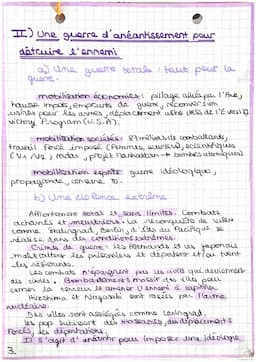 II) Une guerre d'anéantissement pour
détruire l'ennemi
a) Une guerre totale : tout pour la
guerre.
mobilisation économies : pillage alliés par l'Axe,
hausse impôts, emprunts de guerre, reconversion
usines pour les armes, déplacement usine URSS de l'E vers
Victory Program (U.S.A).
mobilisation sociétés : 87 millions de combattants,
travail forcé imposé (femmes, ), scientifiques
(V1, V2, radar, projet Manhattan → bombes atomiques)
mobilisation esprits : guerre idéologique,
propagande, censure
b) Une violence extrême
Affrontement total et sans limites. Combats
acharnés et meurtriers. La reconquête de villes
comme Stalingrad, Berlin, d'îles du Pacifique se
réalise dans des conditions extrêmes.
Crimes de guerre : les Allemands et les japonais
maltraitent les prisonniers et déportent et/ou tuent
les résistants.
Les combats n'épargnent pas les civils qui deviennent
des cibles. Bombardements massifs des villes pour
semer la terreur et amener l'ennemi à capituler.
Hiroshima et Nagasaki sont rasées par l'arme
nucléaire.
Des villes sont assiégées comme Leningrad,
les pop subissent des massacres, des déplacements
forcés, des déportations.
Il s'agit d'anéantir pour imposer une idéologie.
3.